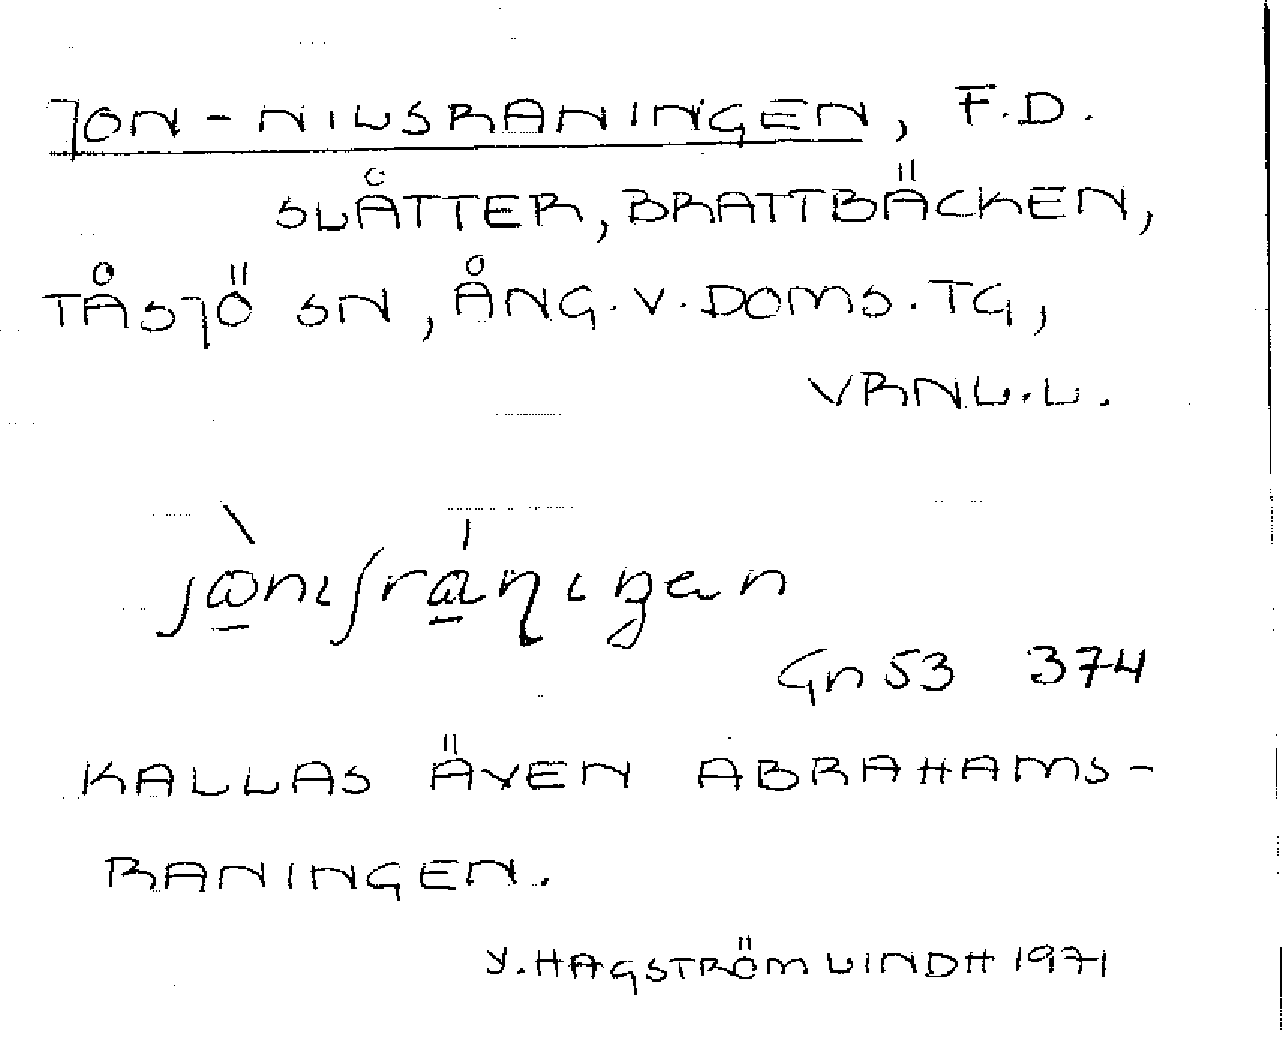 JON-NILSRANINGEN, F.D.
SLÅTTER, BRATTBÄCKEN,
TÅSJÖ SN, ÅNG. V. DOMS. TG,
VRNL. L.
Gn 53 374
KALLAS ÄVEN ABRAHAMS-
RANINGEN.
Y. HAGSTRÖM LINDH 1971